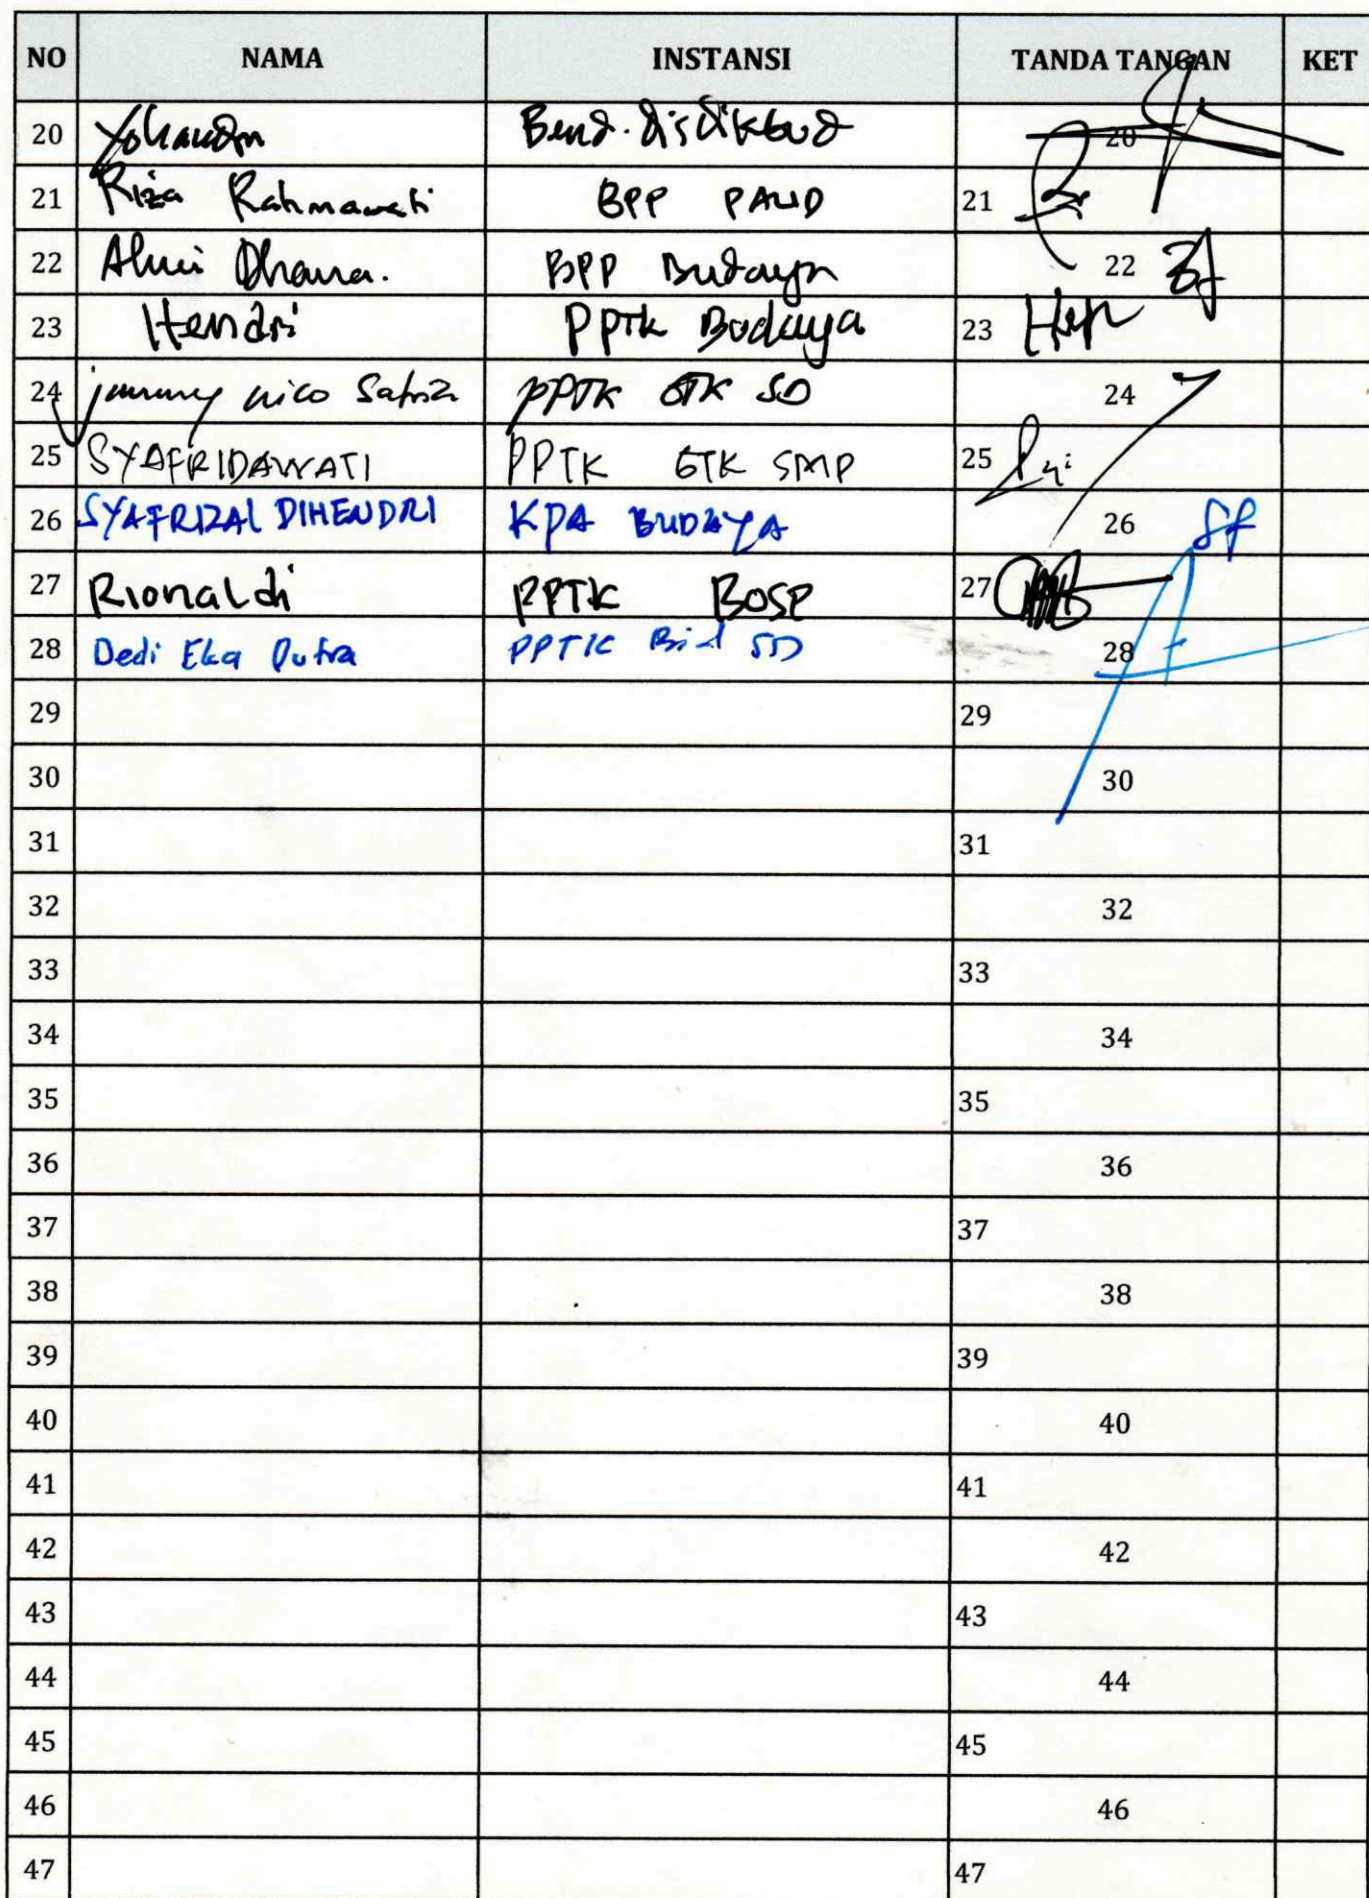 NO NAMA INSTANSI TANDA TANGAN KET
20 Bend. disdikbud 20
21 Riza Rahmawati BPP PAUD 21
22 Dhana. BPP Budaya 22
23 Hendri PPTK Budaya 23
24 nico Satria PPTK GTK SD 24
25 SYAFRIDAWATI PPTK GTK SMP 25
26 SYAFRIZAL DIHENDRI KPA BUDAYA 26
27 Rionaldi PPTK BOSP 27
28 Dedi Eka Putra PPTK Bid SD 28
29 29
30 30
31 31
32 32
33 33
34 34
35 35
36 36
37 37
38 38
39 39
40 40
41 41
42 42
43 43
44 44
45 45
46 46
47 47